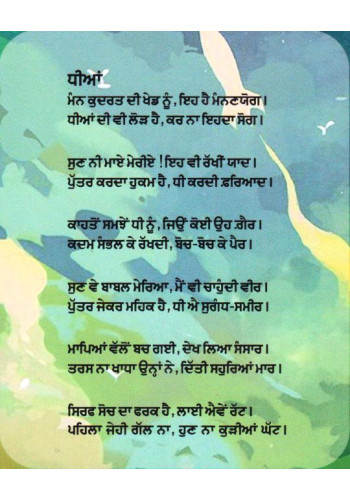 ਧੀਆਂ
ਮੰਨ ਕੁਦਰਤ ਦੀ ਖੇਡ ਨੂੰ, ਇਹ ਹੈ ਮੰਨਣਯੋਗ।
ਧੀਆਂ ਦੀ ਵੀ ਲੋੜ ਹੈ, ਕਰ ਨਾ ਇਹਦਾ ਸੋਗ।
ਸੁਣ ਨੀ ਮਾਏ ਮੇਰੀਏ ! ਇਹ ਵੀ ਰੱਖੀਂ ਯਾਦ।
ਪੁੱਤਰ ਕਰਦਾ ਹੁਕਮ ਹੈ, ਧੀ ਕਰਦੀ ਫ਼ਰਿਆਦ।
ਕਾਹਤੋਂ ਸਮਝੇਂ ਧੀ ਨੂੰ, ਜਿਉਂ ਕੋਈ ਉਹ ਗ਼ੈਰ।
ਕਦਮ ਸੰਭਲ ਕੇ ਰੱਖਦੀ, ਬੋਚ-ਬੋਚ ਕੇ ਪੈਰ।
ਸੁਣ ਵੇ ਬਾਬਲ ਮੇਰਿਆ, ਮੈਂ ਵੀ ਚਾਹੁੰਦੀ ਵੀਰ।
ਪੁੱਤਰ ਜੇਕਰ ਮਹਿਕ ਹੈ, ਧੀ ਐ ਸੁਗੰਧ-ਸਮੀਰ।
ਮਾਪਿਆਂ ਵੱਲੋਂ ਬਚ ਗਈ, ਦੇਖ ਲਿਆ ਸੰਸਾਰ।
ਤਰਸ ਨਾ ਖਾਧਾ ਉਨ੍ਹਾਂ ਨੇ, ਦਿੱਤੀ ਸਹੁਰਿਆਂ ਮਾਰ।
ਸਿਰਫ ਸੋਚ ਦਾ ਫਰਕ ਹੈ, ਲਾਈ ਐਵੇਂ ਰੱਟ।
ਪਹਿਲਾ ਜੇਹੀ ਗੱਲ ਨਾ, ਹੁਣ ਨਾ ਕੁੜੀਆਂ ਘੱਟ।